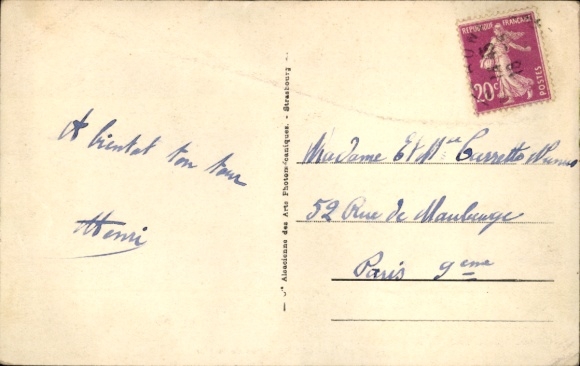 A bientot ton tour
Henri
Cie Alsacienne des Arts Photomécaniques. - Strasbourg
REPUBLIQUE FRANÇAISE
20c
POSTES
Madame Et Mlle Carrette
52 Rue de Maubeuge
Paris 9eme